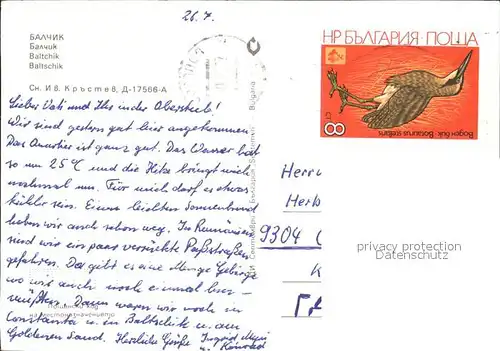 26.7.
БАЛЧИК
Балчик
Baltchik
Baltschik
Сн. Ив. Кръстев, Д-17566-А
НР БЪЛГАРИЯ·ПОЩА
Воден бик · Botaurus stellaris
8
Lieber Vati und Ihr in der Oberstub!
Wir sind gestern gut hier angekommen.
Das Quartier ist ganz gut. Das Wasser hat
so um 25°C und die Hitze bringt mich
nochmal um. Für mich darf es etwas
kühler sein. Einen leichten Sonnenbrand
haben wir auch schon weg. In Rumänien
sind wir ein paar verrückte Paßstraßen
gefahren. Da gibt es eine Menge Gebirge
wo wir auch noch einmal hin-
müßten. Dann waren wir noch in
Constanta u. in Baltschik u. am
Goldenen Sand. Herzliche Grüße Ingrid
Септември
България
Bulgaria
Herrn
Herb
9304
privacy protection
Datenschutz